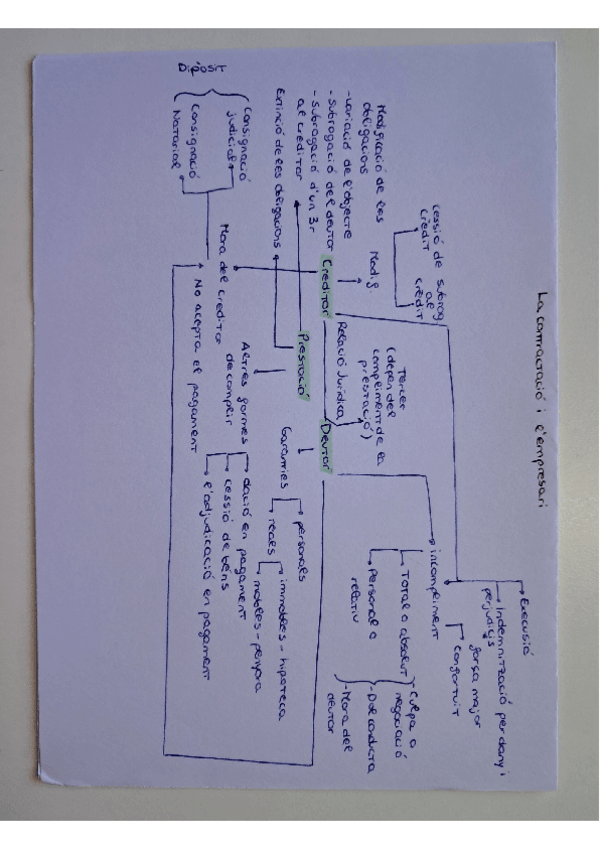 La contractació i l'empresari
Execusió
Indemnització per dany i
perjudicis
forsa major
Confortuit
Cessió de
crèdit
Subrog
al
crèdit
incompliment
Total o absolut
Personal o
relativ
Culpa o
negociació
- Dol conducta
- Mora del
deutor
Modificació de les
obligacions
- variació de l'objecte
- subrogació del deutor
- subrogació d'un 3r
al creditor
Extinció de les obligacions
Modig.
Tercer
(depen del
compliment de la
prestació)
Relació Jurídica
Creditor
Deutor
Prestació
Garanties
personals
reals
immobles - hipoteca
mobles - penyora
Altres formes
de complir
dació en pagament
cessió de béns
l'adjudicació en pagament
Dipòsit
Consignació
judicial
Consignació
Notarial
Mora del creditor
No acepta el pagament